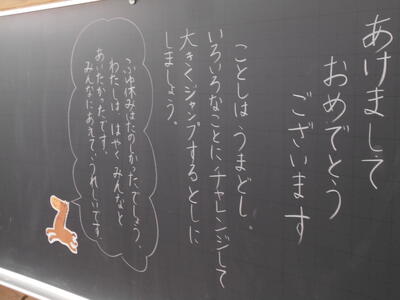 あけまして
おめでとう
ございます
ことしは うまどし。
いろいろなことに チャレンジして
大きくジャンプするとしに
しましょう。
ふゆ休みはたのしかったでしょう。
わたしは、はやく みんなと
あいたかったです。
みんなにあえて、うれしいです。